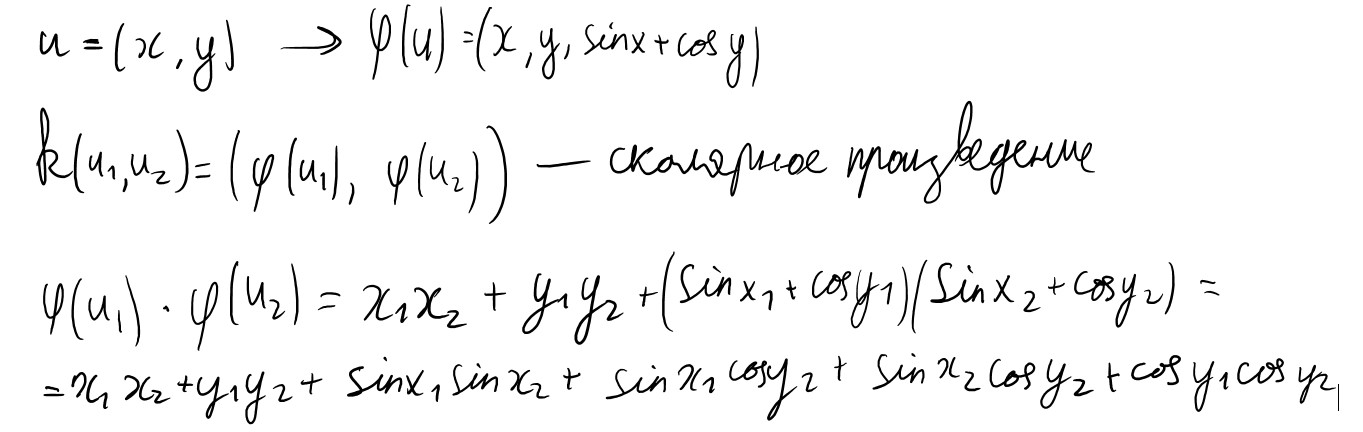 u = (x, y) → φ(u) = (x, y, sin x + cos y)
k(u₁, u₂) = (φ(u₁), φ(u₂)) — скалярное произведение
φ(u₁) · φ(u₂) = x₁x₂ + y₁y₂ + (sin x₁ + cos y₁)(sin x₂ + cos y₂) =
= x₁x₂ + y₁y₂ + sin x₁ sin x₂ + sin x₁ cos y₂ + sin x₂ cos y₂ + cos y₁ cos y₂